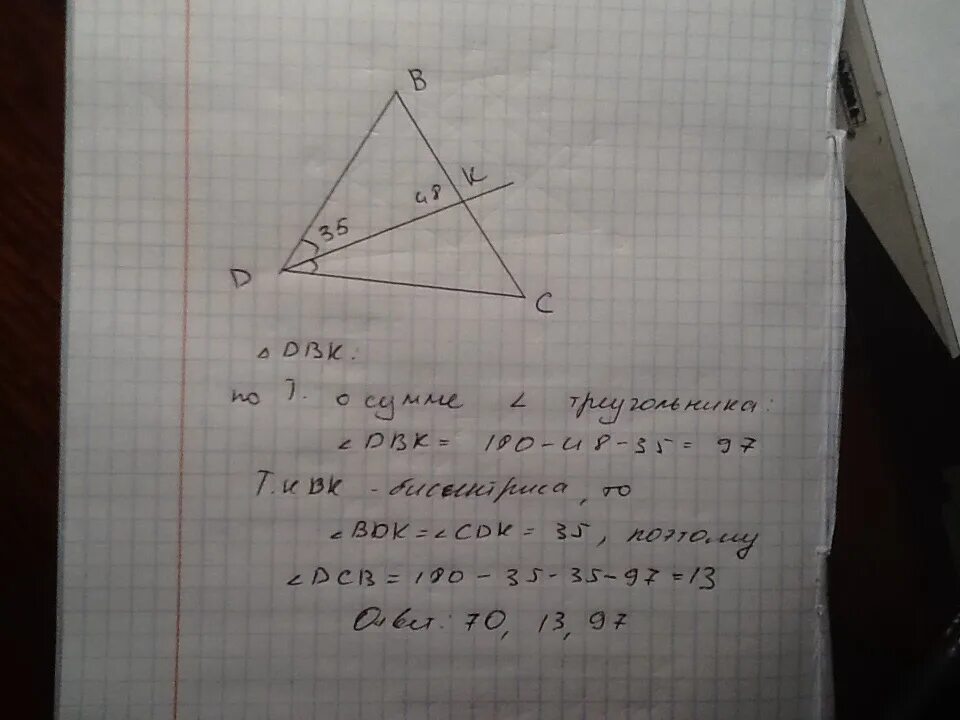 B
K
48
35
D
C
△ DBK:
по Т. о сумме ∠ треугольника:
∠DBK = 180 - 48 - 35 = 97
Т.к BK - биссектриса, то
∠BDK = ∠CDK = 35, поэтому
∠DCB = 180 - 35 - 35 - 97 = 13
Ответ: 70, 13, 97